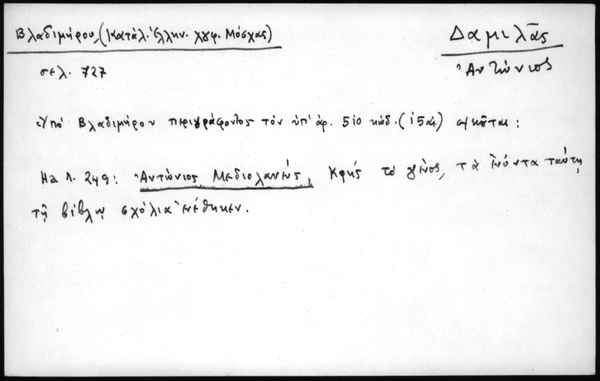 Βλαδιμήρου, (Κατάλ. Ἑλλην. χγφ. Μόσχας)
σελ. 727
Δαμιλᾶς
Ἀντώνιος
Ὑπὸ Βλαδιμήρου περιγράφοντος τὸν ὑπ' ἀρ. 510 κώδ. (
На л. 249: Ἀντώνιος Μεδιολανεὺς, Κρὴς τὸ γένος, τὰ ἐνόντα ταύτῃ
τῇ βίβλῳ σχόλια ἐνέθηκεν.